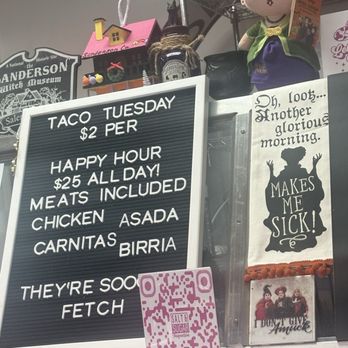 SANDERSON
Witch Museum
TACO TUESDAY
$2 PER
HAPPY HOUR
$25 ALL DAY!
MEATS INCLUDED
CHICKEN ASADA
CARNITAS BIRRIA
THEY'RE SOO
FETCH
Oh, look...
Another
glorious
morning.
MAKES
ME
SICK!
I DON'T GIVE
Amuck